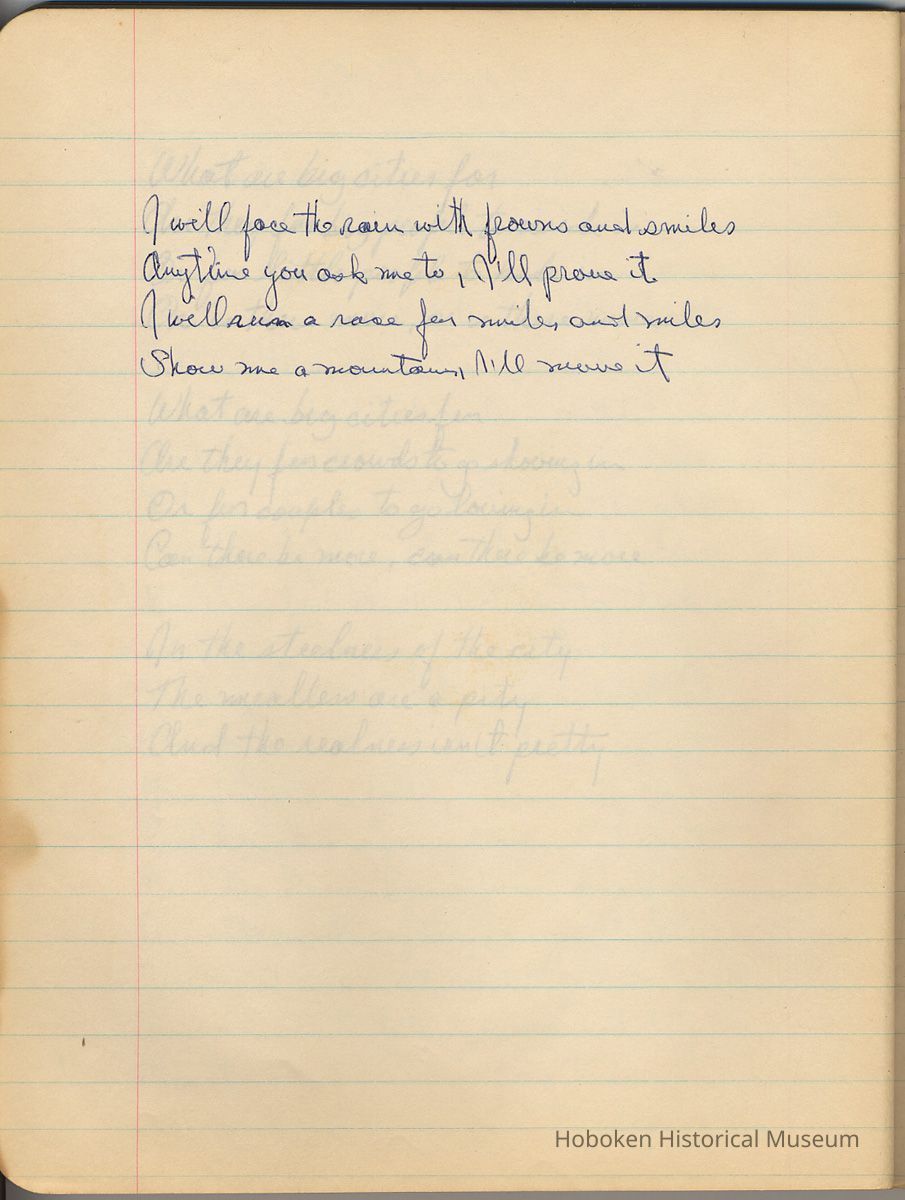 What are big cities for
I will face the rain with frowns and smiles
Anytime you ask me to, I'll prove it
I will run a race for smiles and smiles
Show me a mountain, I'll move it
What are big cities for
Are they for crowds to go shoving in
Or for couples to go loving in
Can there be more, can there be more
In the steelness of the city
The are a pity
And the realness isn't pretty
Hoboken Historical Museum